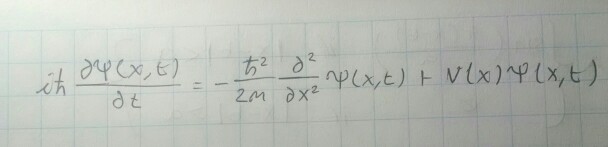 iħ ∂ψ(x,t)/∂t = - ħ²/2m ∂²/∂x² ψ(x,t) + V(x)ψ(x,t)